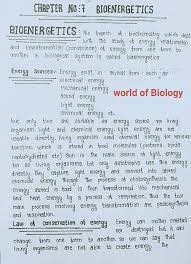 CHAPTER NO:7 BIOENERGETICS
BIOENERGETICS: The branch of biochemistry which deal
with the study of energy relationship
and transformation (conversion) of energy from one form to
another in biological system is called bioenergetics
Energy Sources: Energy exist in several form such as
electrical energy
Mechanical energy
world of Biology
Sound energy
light energy
chemical energy etc.
but only two are as energy source for living
organism light and chemical energy. light energy are not
directly using living organisms used chemical energy for various
function which is stored in food molecules (proteins, lipids
carbohydrates etc) Sun is the main source of light energy
to us living organisms, but only autotrophs use this energy
directly. They capture light energy and convert into
chemical energy through the process of photosynthesis. The
energy stored in food is then transformed into mechanical
and heat energy by a process of respiration. Thus the two
main process involving energy transformation are photosynthesis
and respiration.
Law of conservation of energy: Energy can neither created
nor destroyed but it can
change from one form to another so we can say that
living organisms are not able to create energy. The